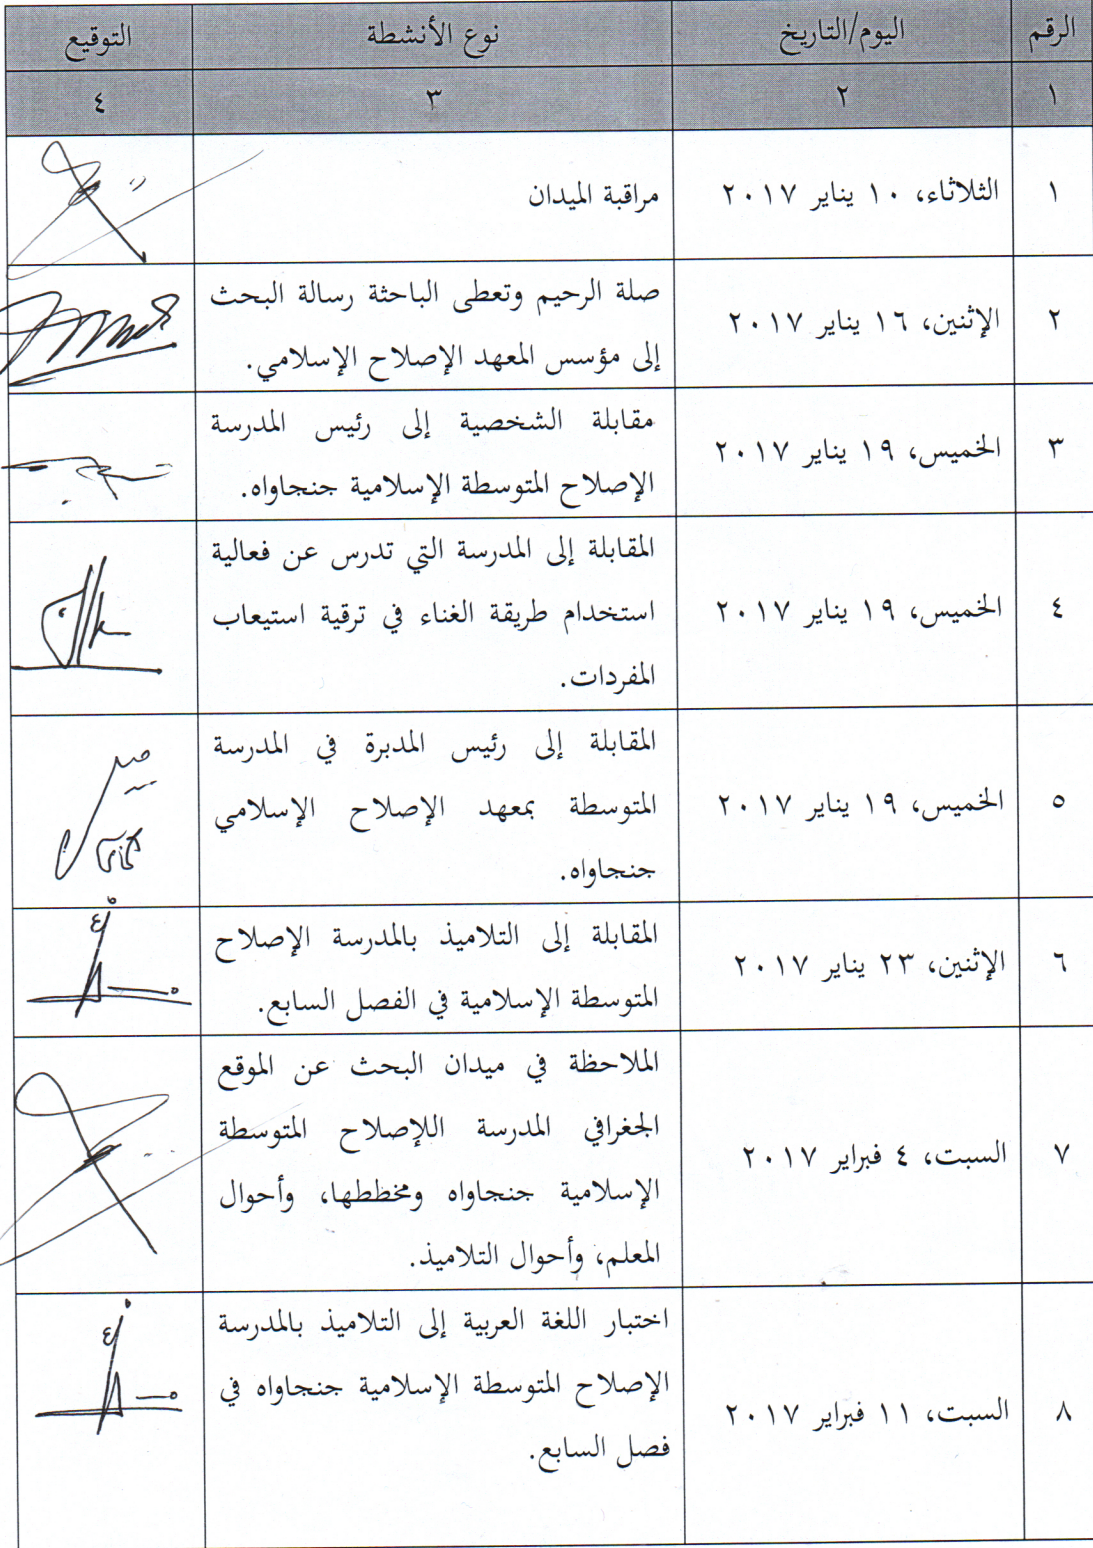 الرقم اليوم/التاريخ نوع الأنشطة التوقيع
١ ٢ ٣ ٤
١ الثلاثاء، ١٠ يناير ٢٠١٧ مراقبة الميدان
٢ الإثنين، ١٦ يناير ٢٠١٧ صلة الرحيم وتعطى الباحثة رسالة البحث
إلى مؤسس المعهد الإصلاح الإسلامي.
٣ الخميس، ١٩ يناير ٢٠١٧ مقابلة الشخصية إلى رئيس المدرسة
الإصلاح المتوسطة الإسلامية جنجاواه.
٤ الخميس، ١٩ يناير ٢٠١٧ المقابلة إلى المدرسة التي تدرس عن فعالية
استخدام طريقة الغناء في ترقية استيعاب
المفردات.
٥ الخميس، ١٩ يناير ٢٠١٧ المقابلة إلى رئيس المدبرة في المدرسة
المتوسطة بمعهد الإصلاح الإسلامي
جنجاواه.
٦ الإثنين، ٢٣ يناير ٢٠١٧ المقابلة إلى التلاميذ بالمدرسة الإصلاح
المتوسطة الإسلامية في الفصل السابع.
٧ السبت، ٤ فبراير ٢٠١٧ الملاحظة في ميدان البحث عن الموقع
الجغرافي المدرسة اللإصلاح المتوسطة
الإسلامية جنجاواه ومخططها، وأحوال
المعلم، وأحوال التلاميذ.
٨ السبت، ١١ فبراير ٢٠١٧ اختبار اللغة العربية إلى التلاميذ بالمدرسة
الإصلاح المتوسطة الإسلامية جنجاواه في
فصل السابع.